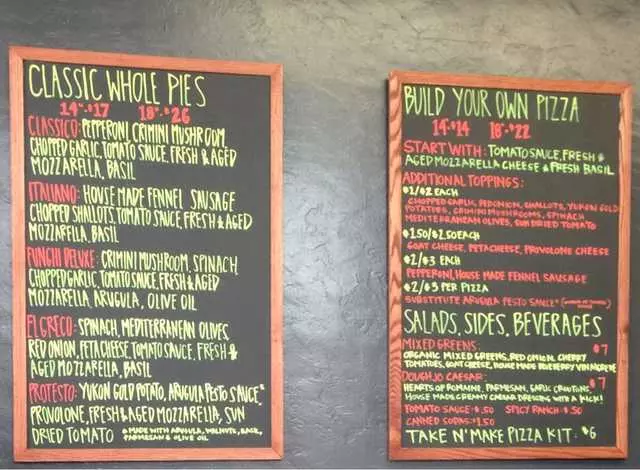 CLASSIC WHOLE PIES
14"-$17 18"-$26
CLASSICO: PEPPERONI, CRIMINI MUSHROOM
CHOPPED GARLIC, TOMATO SAUCE, FRESH & AGED
MOZZARELLA, BASIL
ITALIANO: HOUSE MADE FENNEL SAUSAGE
CHOPPED SHALLOTS, TOMATO SAUCE, FRESH & AGED
MOZZARELLA, BASIL
FUNGHI DELUXE: CRIMINI MUSHROOM, SPINACH
CHOPPED GARLIC, TOMATO SAUCE, FRESH & AGED
MOZZARELLA, ARUGULA, OLIVE OIL
EL GRECO: SPINACH, MEDITERRANEAN OLIVES,
RED ONION, FETA CHEESE, TOMATO SAUCE, FRESH &
AGED MOZZARELLA, BASIL
PROTESTO: YUKON GOLD POTATO, ARUGULA PESTO SAUCE,*
PROVOLONE, FRESH & AGED MOZZARELLA, SUN
DRIED TOMATO *MADE WITH ARUGULA, WALNUTS, BASIL,
PARMESAN & OLIVE OIL
BUILD YOUR OWN PIZZA
14"-$14 18"-$22
START WITH: TOMATO SAUCE, FRESH &
AGED MOZZARELLA CHEESE & FRESH BASIL
ADDITIONAL TOPPINGS:
$1/$2 EACH
CHOPPED GARLIC, RED ONION, SHALLOTS, YUKON GOLD
POTATOES, CRIMINI MUSHROOMS, SPINACH
MEDITERRANEAN OLIVES, SUN DRIED TOMATO
$1.50/$2.50 EACH
GOAT CHEESE, FETA CHEESE, PROVOLONE CHEESE
$2/$3 EACH
PEPPERONI, HOUSE MADE FENNEL SAUSAGE
$2/$3 PER PIZZA
SUBSTITUTE ARUGULA PESTO SAUCE*
SALADS, SIDES, BEVERAGES
MIXED GREENS: $7
ORGANIC MIXED GREENS, RED ONION, CHERRY
TOMATOES, GOAT CHEESE, HOUSE MADE BLUEBERRY VINAIGRETTE
DOUGHJO CAESAR: $7
HEARTS OF ROMAINE, PARMESAN, GARLIC CROUTONS,
HOUSE MADE CREAMY CAESAR DRESSING WITH A KICK!
TOMATO SAUCE: $.50 SPICY RANCH: $.50
CANNED SODAS: $1.50
TAKE N' MAKE PIZZA KIT: $6